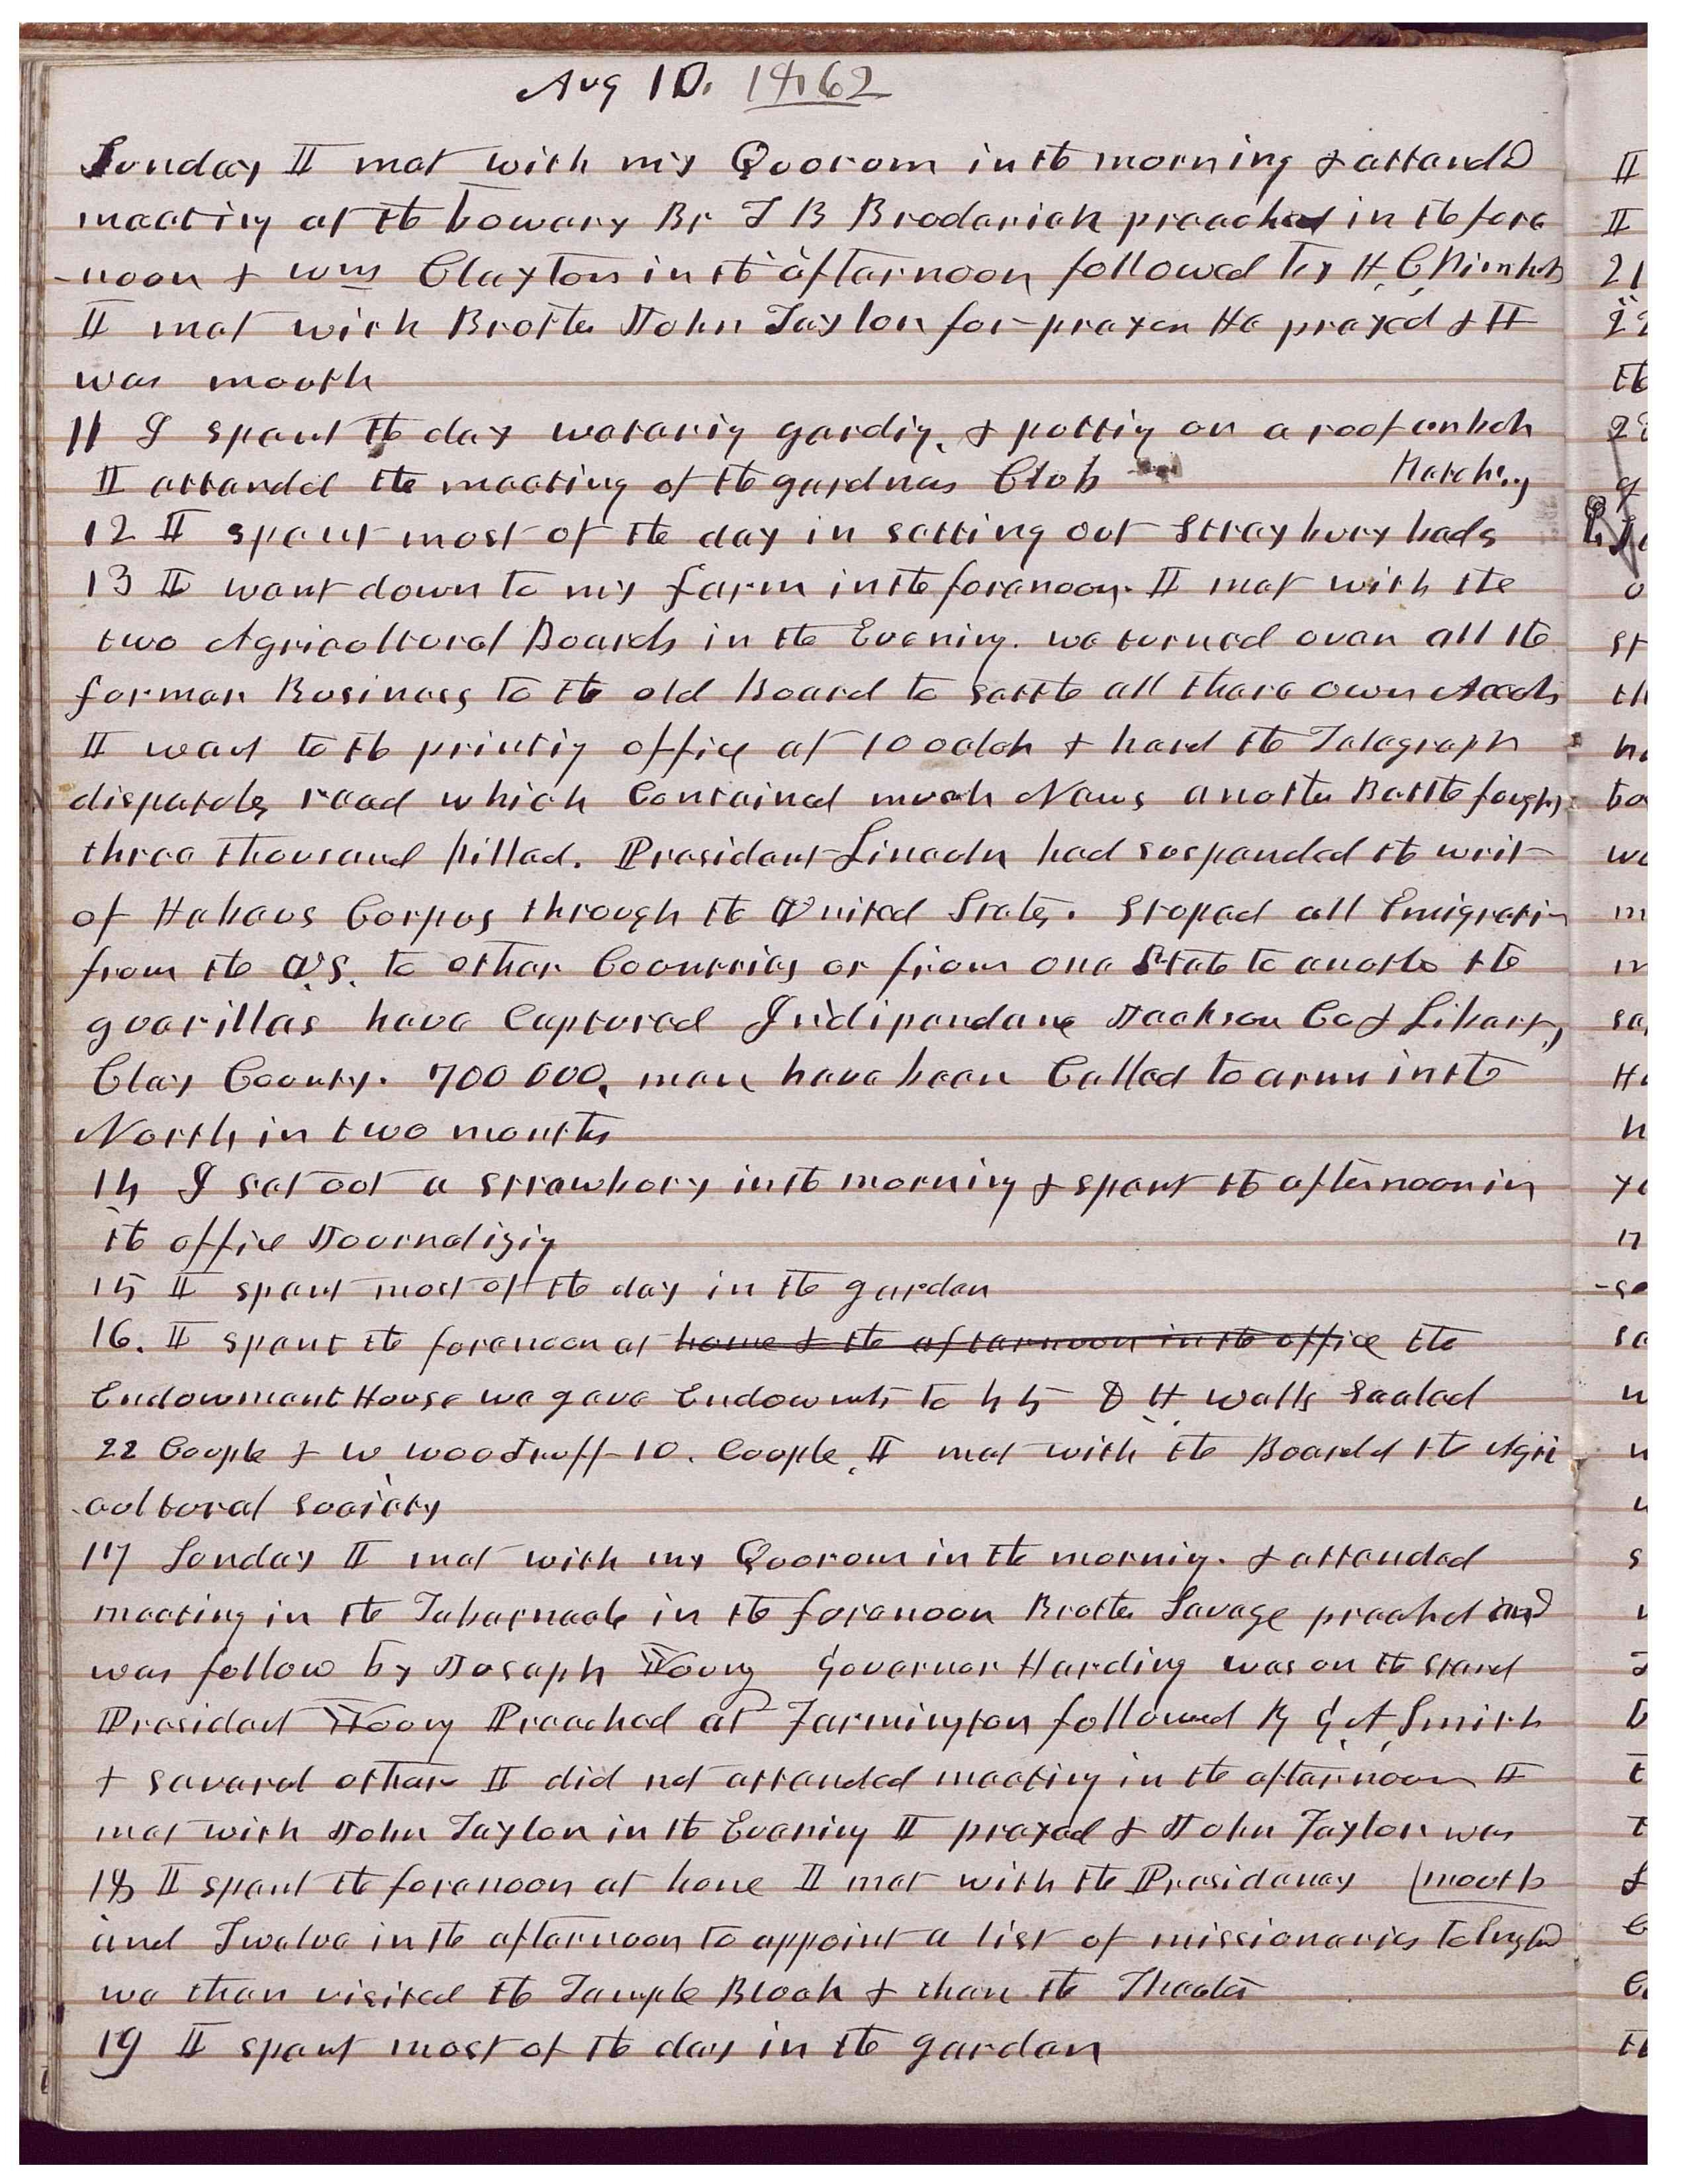 Aug 10. 1862
Sunday I met with my Quorum in the morning & attend
meeting at the bowery Br T B Broderick preached in the fore
-noon & Wm Clayton in the afternoon followed by H. C Kimball
I met with Brother John Taylor for prayer He prayed & I
was mouth
11 I spent the day watering gardin, & putting on a roof on
II attended the meeting of the gardners Club
12 I spent most of the day in setting out Straybury beds
13 I went down to my farm in the forenoon. I met with the
two Agricultural Boards in the Evening. we turned over all the
former Business to the old Board to settle all there own Accts
I went to the printig office at 10 oclok & hard the Telegraph
dispatches read which Contained much News another Battle fought
three thousand killed. President Lincoln had suspended the writ
of Habeus Corpus through the United States. Stoped all Emigration
from the U.S. to other Countries or from one State to another the
guerillas have Captured Indipendance Jackson Co & Liberty,
Clay County. 700000, men have been Called to arms in the
North in two months
14 I set out a strawbery in the morning & spent the afternoon in
the office Journalizig
15 I spent most of the day in the garden
16. I spent the forenoon at home & the afternoon in the office the
Endowment House we gave Endowmts to 45 D H Wells Sealed
22 Couple & W Woodruff 10. Couple, I met with the Board of the Agri
-cultural Society
17 Sunday I met with my Quorum in the mornig. & attended
meeting in the Tabernacle in the forenoon Brother Savage preached and
was follow by Joseph Young Governor Harding was on the stand
President Young Preached at Farmington followed by G. A. Smith
& several others I did not attended meeting in the afternoon I
met with John Taylor in the Evening I prayed & John Taylor was
18 I spent the forenoon at home I met with the Presidency [mouth
and Twelve in the afternoon to appoint a list of missionaries to England
we then visited the Temple Block & then the Theater
19 I spent most of the day in the garden